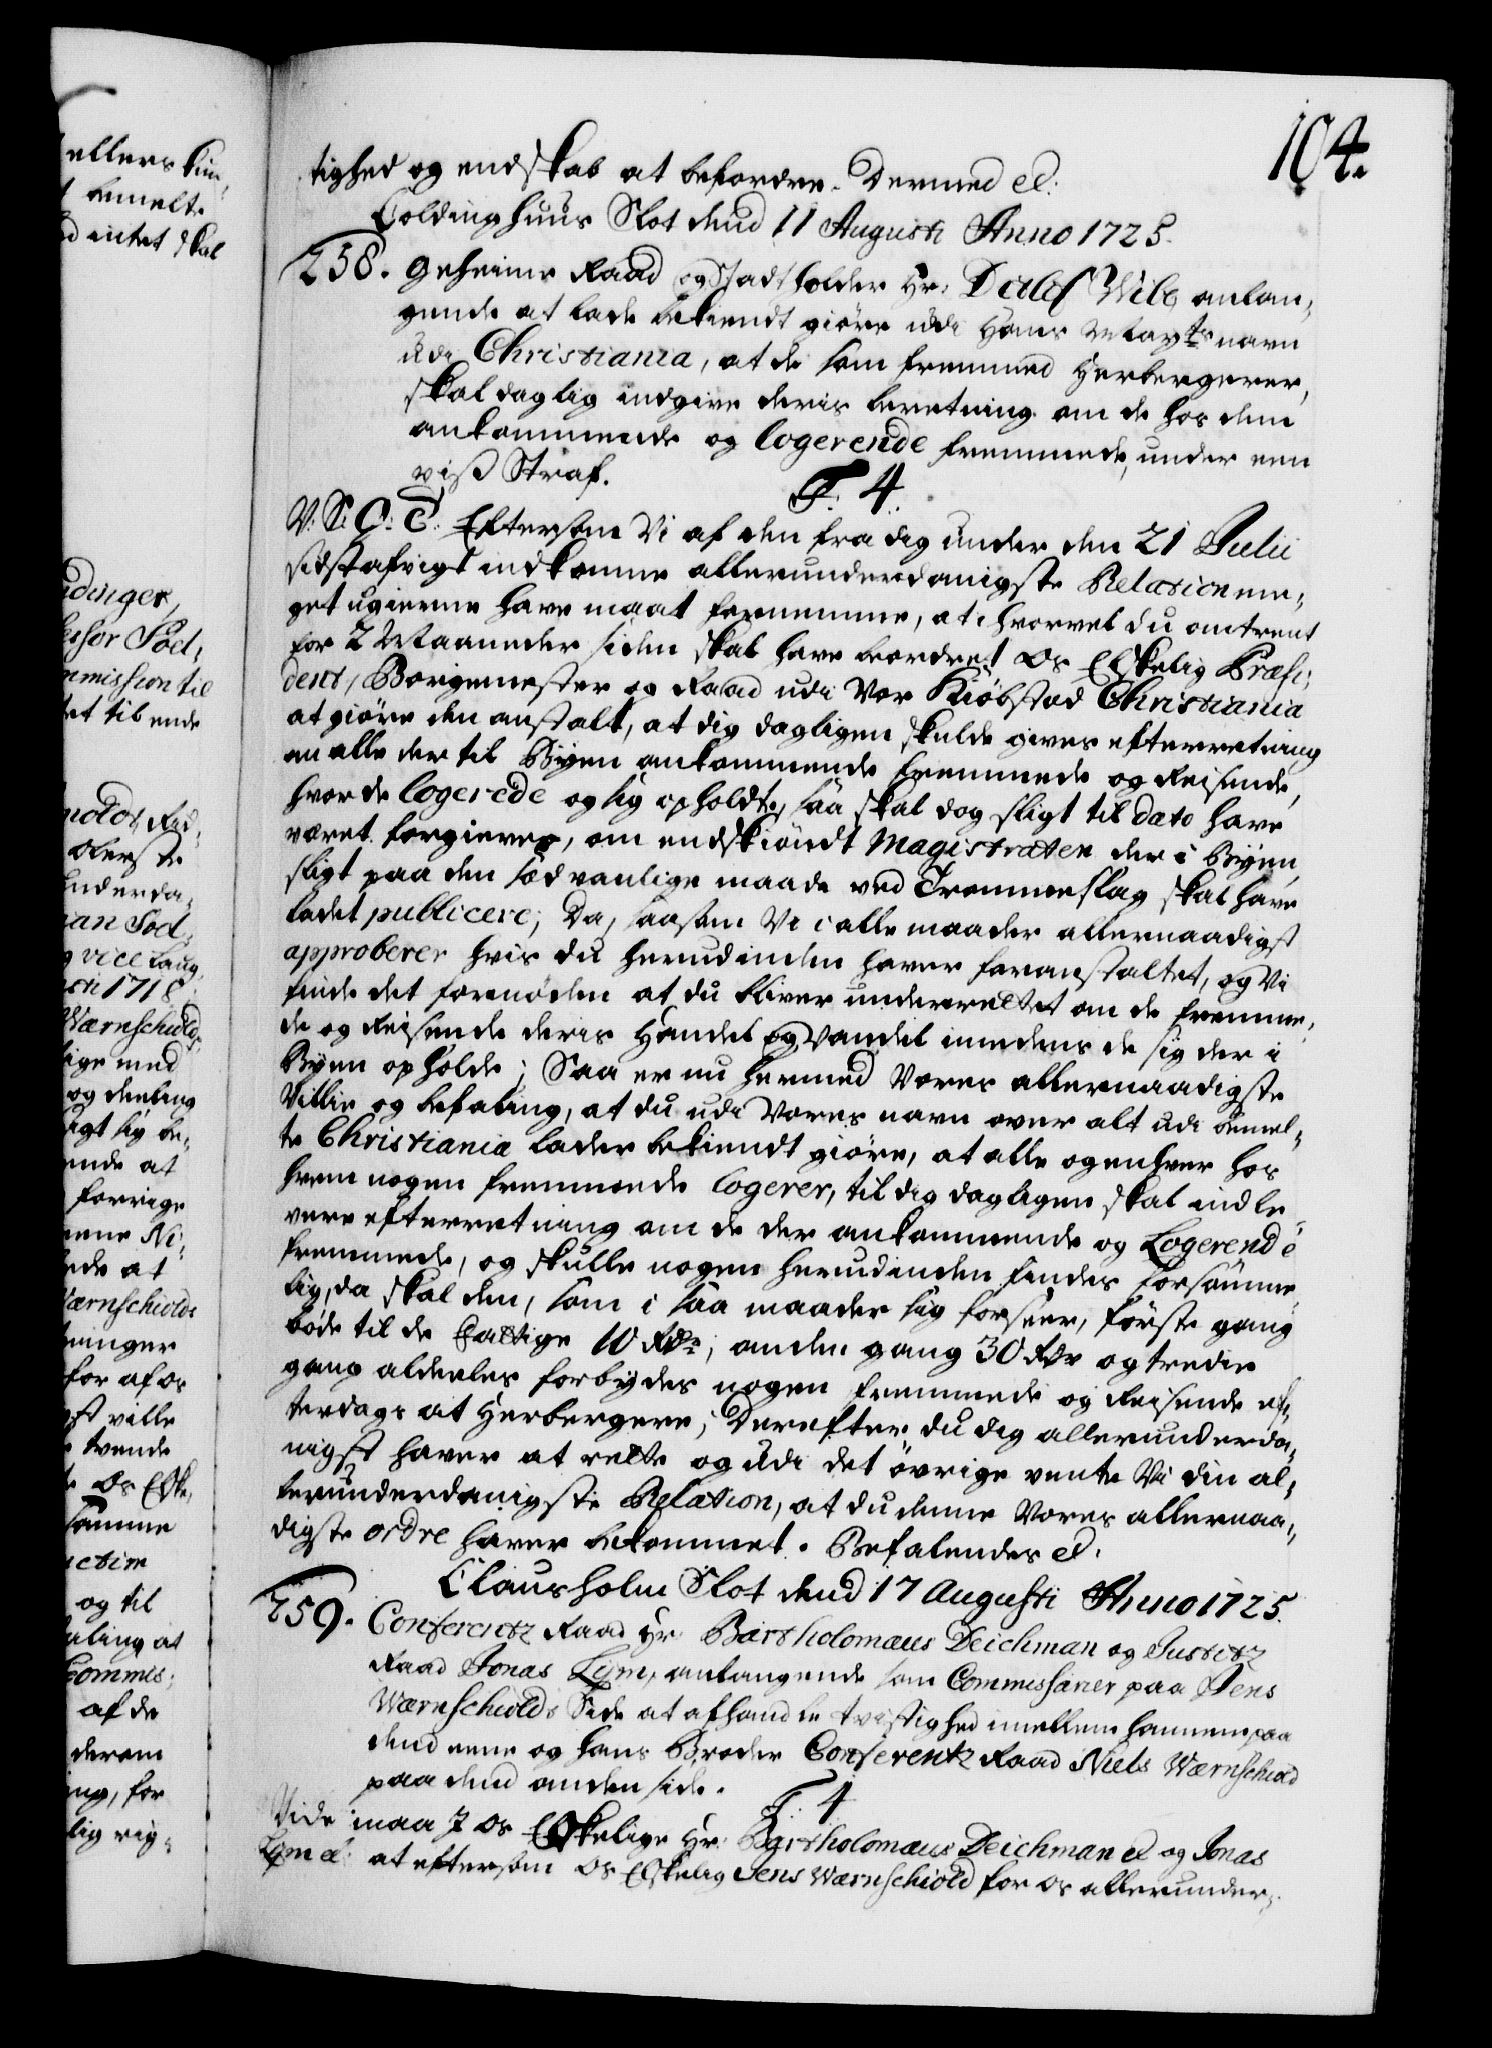 104.
tighed og endskab at befordre. Dermed et:
Coldinghuus Slot dend 11 Augusti Anno 1725.
258. Geheime Raad og Stadtholder Hr: Detlef Wibe anlan,
gende at lade bekiendt giöre udi Hans Mayts navn
udi Christiania, at de som fremmed Herbergerer,
skal daglig indgive deris beretning om de hos dem
ankommende og logerende fremmede, under een
viss Straf.
F: 4.
V: S: G: T: Eftersom Vi af den fra dig under den 21 Julii
sidstafvigt indkomne allerunderdanigste Relation me,
get ugierne have maat fornemme, at i hvorvel du omtrent
for 2 Maaneder siden skal have beordret Os Elskelig Præsi,
dent, Borgemester og Raad udi Vor Kiöbstad Christiania
at giöre den anstalt, at dig dagligen skulde gives efterretning
om alle der til Byen ankommende fremmede og Reisende,
hvor de logerede og sig opholdte, saa skal dog sligt til dato have
været forgieves, om endskiöndt Magistraten der i Byen
sligt paa den sædvanlige maade ved Trommeslag skal have
ladet publicere; Da, saasom Vi i alle maader allernaadigst
approberer hvis du herudinden haver foranstaltet, og Vi
finde det fornöden at du bliver underrettet om de fremme,
de og Reisende deris Handel og Vandel imedens de sig der i
Byen opholde; Saa er nu hermed Vores allernaadigste
Villie og befaling, at du udi Vores navn over alt udi bemel,
te Christiania lader bekiendt giöre, at alle og enhver hos
hvem nogen fremmede logerer, til dig dagligen skal indle
vere efterretning om de der ankommende og Logerende
fremmede, og skulle nogen herudinden findes forsömme,
lig, da skal den, som i saa maader sig forseer, förste gang
böde til de Fattige 10 Rdr, anden gang 30 Rdr og tredie
gang aldeeles forbydes nogen fremmede og Reisende ef,
terdags at Herbergere; Derefter du dig allerunderda,
nigst haver at rette og udi det övrige vente Vi din al,
lerunderdanigste Relation, at du denne Vores allernaa,
digste ordre haver bekommet. Befalendes et.
Clausholm Slot dend 17 Augusti Anno 1725.
259. Conferentz Raad Hr Bartholomæus Deichman og Justitz
Raad Jonas Lÿm, anlangende som Commissarier paa Jens
Wærnschiolds Side at afhandle tvistighed imellem hannem paa
dend eene og hans Broder Conferentz Raad Niels Wærnschiold
paa dend anden side.
F: 4
Vide maa J Os Elskelige Hr: Bartholomæus Deichman et og Jonas
Lÿm et: at eftersom Os Elskelig Jens Wærnschiold for Os allerunder,